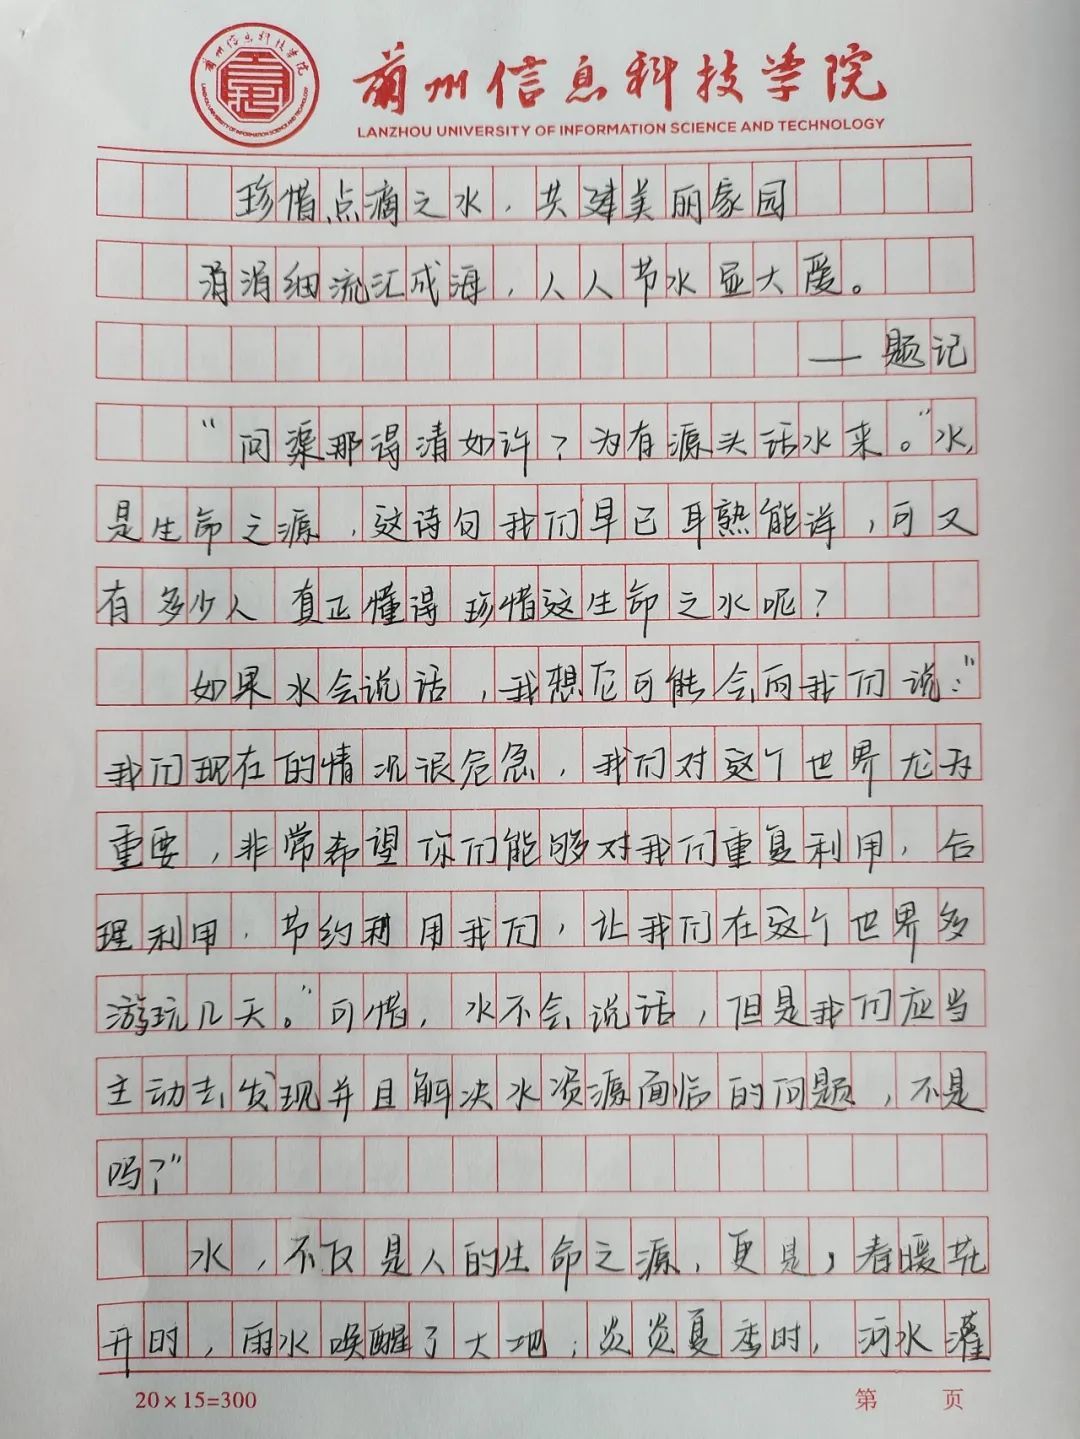 兰州信息科技学院
兰州信息科技学院
LANZHOU UNIVERSITY OF INFORMATION SCIENCE AND TECHNOLOGY
LANZHOU UNIVERSITY OF INFORMATION SCIENCE AND TECHNOLOGY
珍惜点滴之水，共建美丽家园
涓涓细流汇成海，人人节水显大爱。
——题记
“问渠那得清如许？为有源头活水来。”水，
是生命之源，这诗句我们早已耳熟能详，可又
有多少人真正懂得珍惜这生命之水呢？
如果水会说话，我想它可能会向我们说：“
我们现在的情况很危急，我们对这个世界尤为
重要，非常希望你们能够对我们重复利用，合
理利用，节约利用我们，让我们在这个世界多
游玩几天。”可惜，水不会说话，但是我们应当
主动去发现并且解决水资源面临的问题，不是
吗？”
水，不仅是人的生命之源，更是，春暖花
开时，雨水唤醒了大地；炎炎夏季时，河水灌
20×15=300
第 页